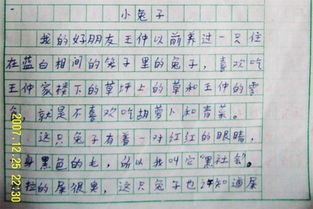 小兔子
我的好朋友王仲以前养过一只住
在蓝白相间的笼子里的兔子,喜欢吃
王仲家楼下的草坪上的草和王仲的零
食,就是不喜欢吃胡萝卜和青菜。
这只兔子有着一对红红的眼睛,
身黑色的毛,所以我叫它"黑社会"。
拉的屎很臭,这只兔子也不知道屎
2007.12.25 22:30